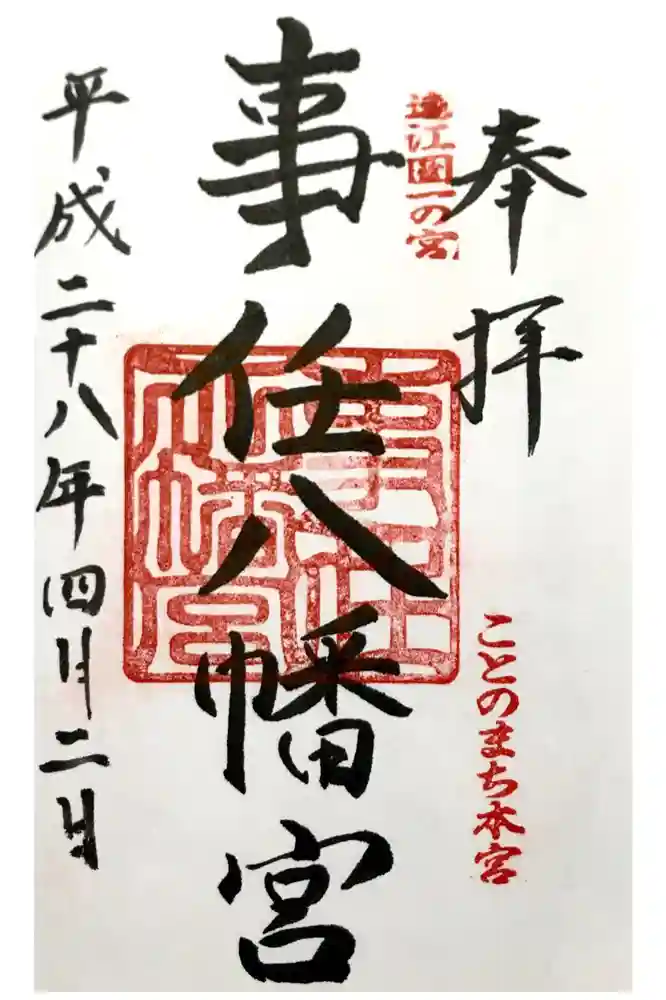 奉拝
遠江國一の宮
ことのまち本宮
事任八幡宮
事任八幡宮
平成二十八年四月二日